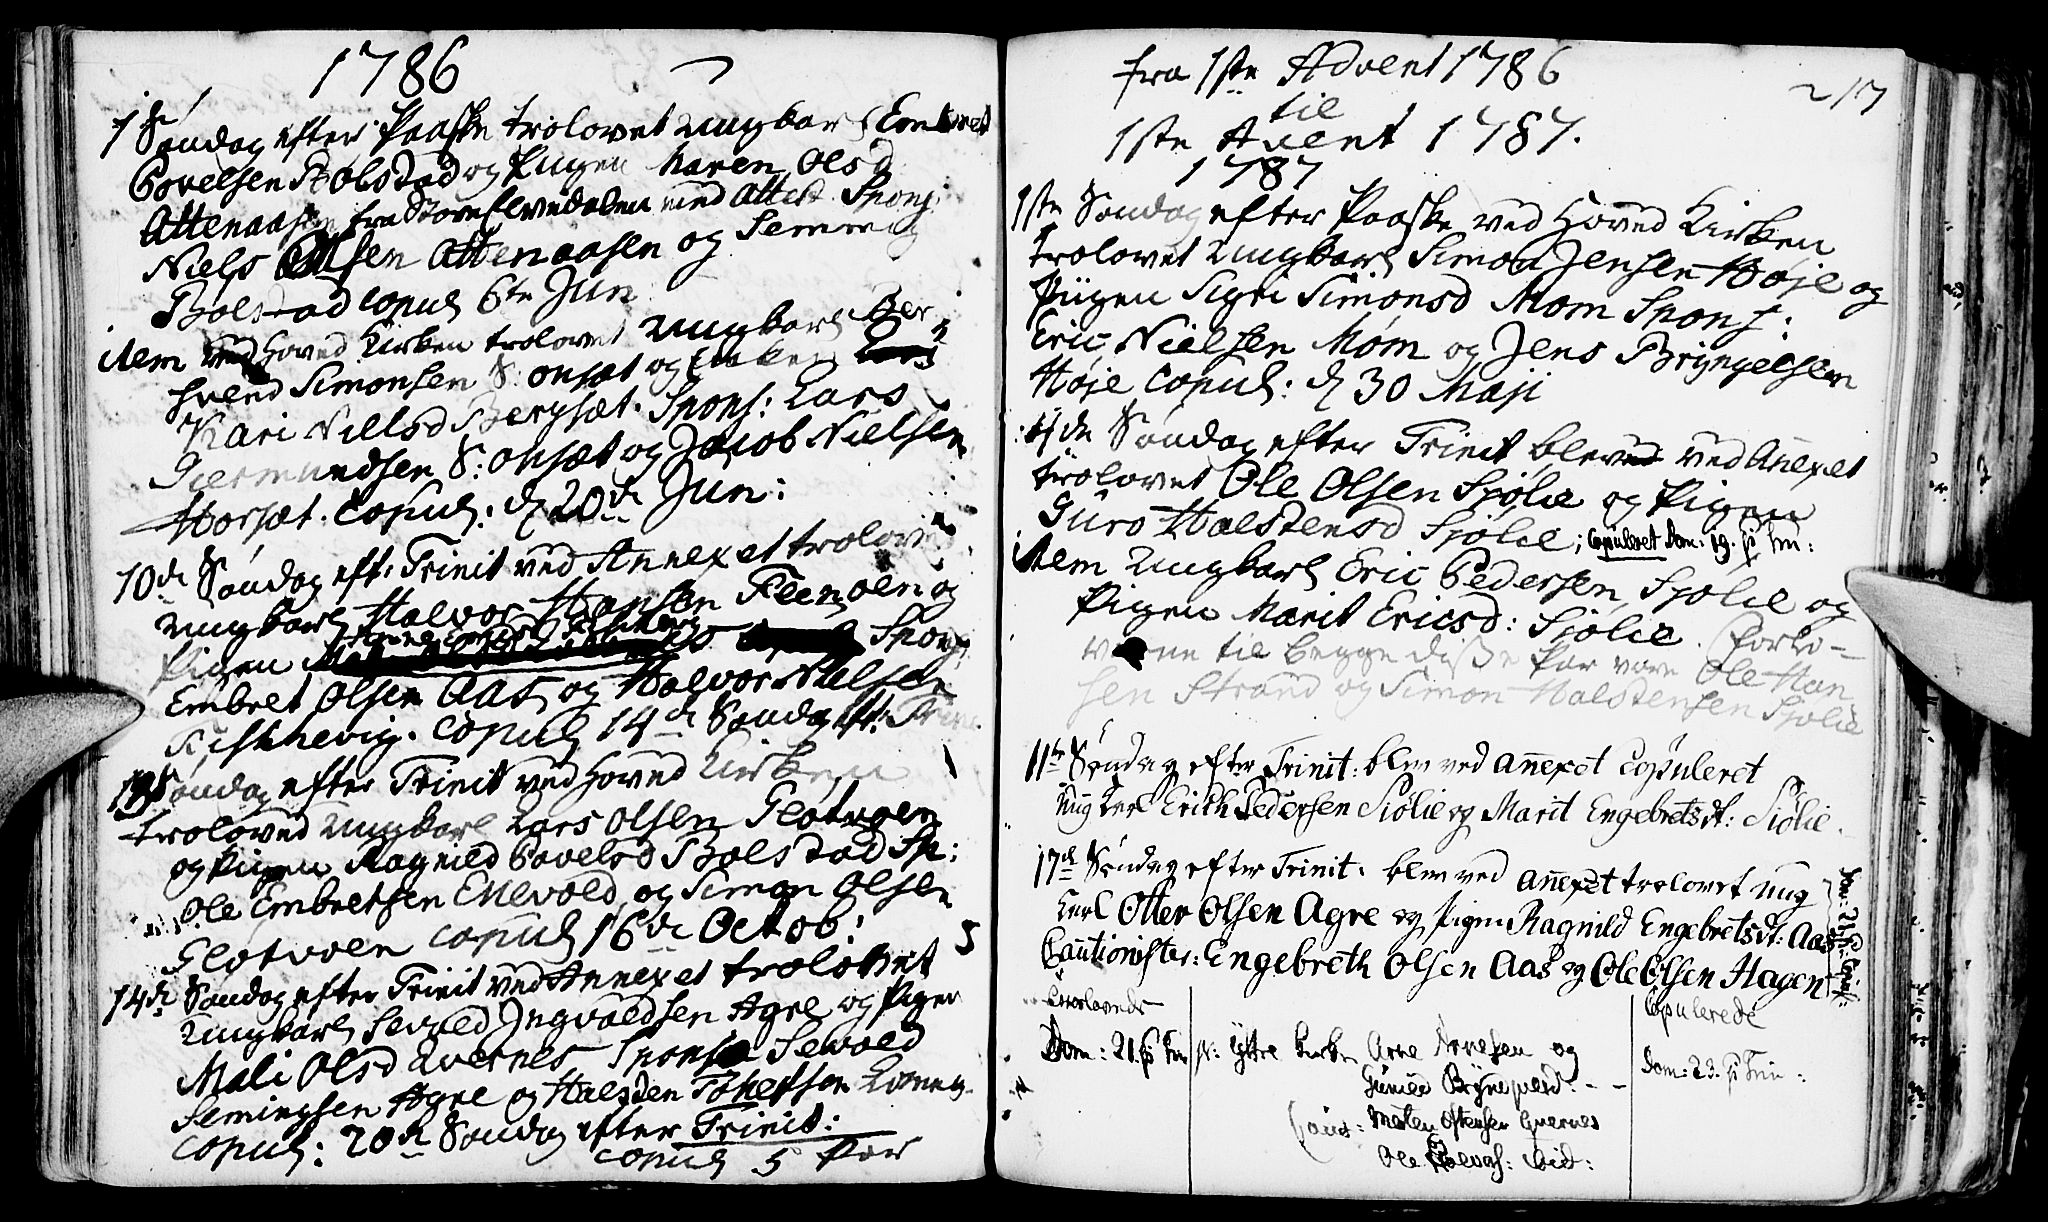 1786
1 Søndag efter Paaske trolovet Ungkarl Embret
Povelsen Bolstad og Pigen Maren Olsd
Attenaasen fra Storelvedalen med Attest. Spons:
Niels Olsen Attenaasen og Semming
Bolstad copul 6te Jun
item ved Hoved Kirken trolovet Ungkarl Ber
svend Simonsen S: onsæt og
Kari Nielsd Bergsæt. Spons: Lars
Giermundsen S: onsæt og Jacob Nielsen
Horsæt. Copul: d 20de Jun:
10de Søndag eft: Trinit ved Annexet trolovet
Ungkarl Halvor Hansen og
Pigen Spons:
Embret Olsen Aas og Halvor Nielsen
Fiskhevig. Copul 14de Søndag eft: Trinit.
13 Søndag efter Trinit ved Hoved Kirken
troloved Ungkarl Lars Olsen Glotvoen
og Pigen Ragnild Povelsd Bolstad Sp:
Ole Embretsen Enevold og Simon Olsen
Glotvoen copul 16de Octob: 5
14de Søndag efter Trinit ved Annexet trolovet
Ungkarl Sevold Ingvoldsen Agre og Pigen
Mali Olsd Qvernes Spons: Sevold
Semingsen Agre og Halsten
copul: 20de Søndag efter Trinit:
copul 5 Par
fra 1ste Advent 1786
217
til
1ste Advent 1787.
1787
1ste Søndag efter Paaske ved Hoved Kirken
trolovet Ungkarl Simon Jensen Høje og
Piigen Sigri Simonsd Mom Spons:
Eric Nielsen Møm og Jens Bryngelsen
Høje Copul: d 30 Maji
4de Søndag efter Trinit blev ved Anexet
trolovet Ole Olsen Sjølie og Pigen
Guro Halstensd Sjølie; Copuleret Dom: 19. p Trin:
item Ungkarl Eric Pedersen Sjølie og
Pigen Marit Ericsd: Sjølie. Forlo-
verne til begge disse Par vare Ole Han
sen Strand og Simon Halstensen Sjolie
11te Søndag efter Trinit: blev ved Anexet Copuleret
Ung Karl Erich Pedersen Siølie og Marit Engebretsdt: Siølie.
17de Søndag efter Trinit. blev ved Anexet trolovet Ung
Karl Otter Olsen Agre og Pigen Ragnild Engebretsdt: Aas
Cautionister: Engebreth Olsen Aas og Ole Olsen Hagen
Trolovede
Copulerede
Dom: 21. p Trin N: Yttre Kirke Arne Arnesen og
Dom: 23. p Trin:
Gunild
Caut: Morten Ostensen Qvernes
Ole Halvors: ibid: